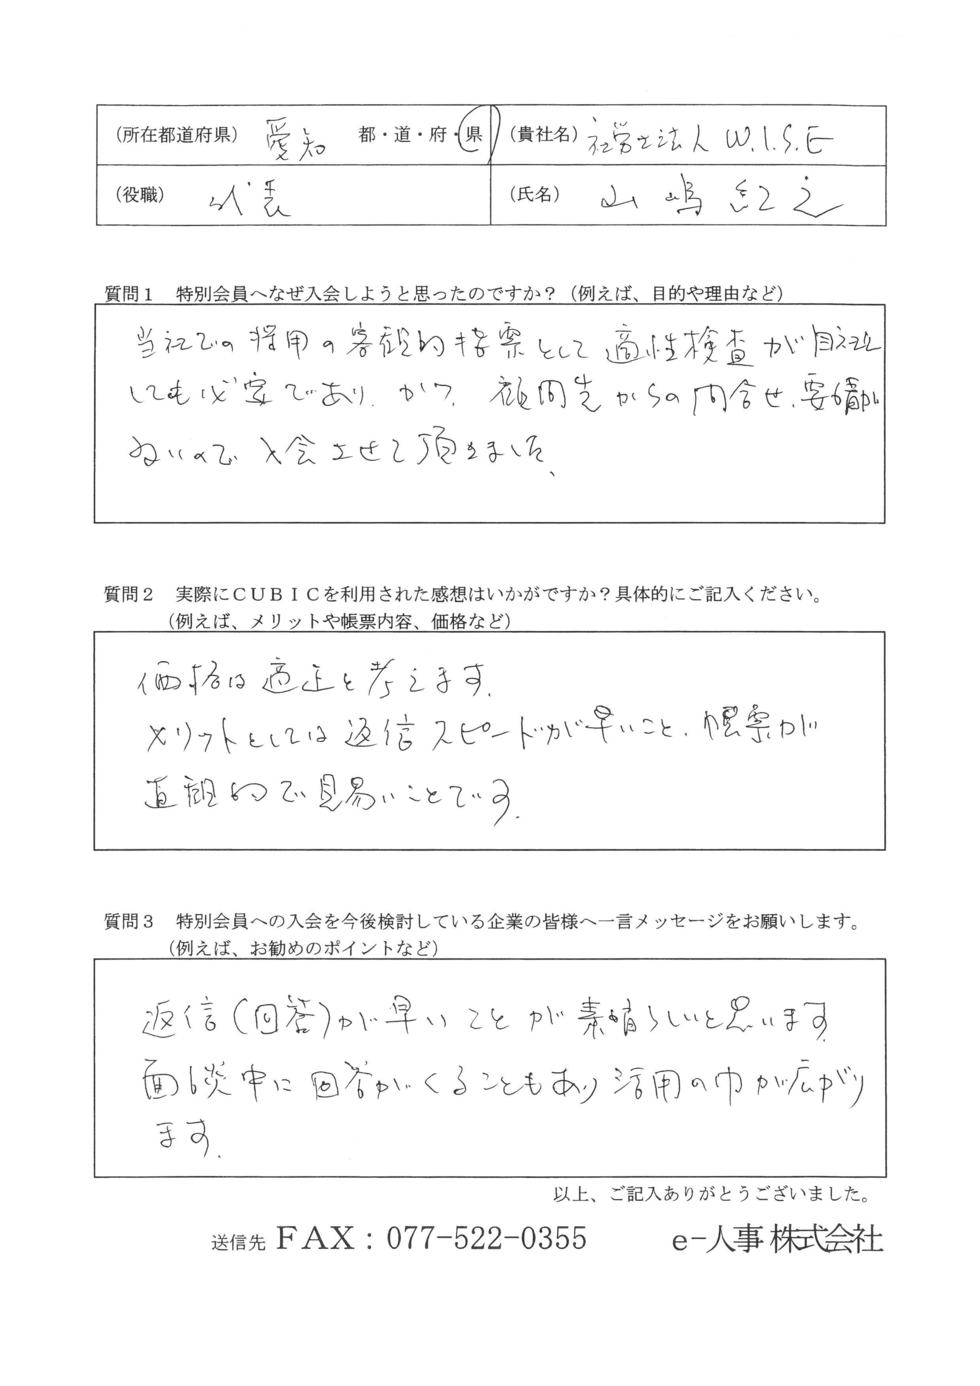 (所在都道府県) 愛知 都・道・府・県 (貴社名) 社労士法人 W.I.S.E
(役職) 代表 (氏名) 山嶋紀之
質問1 特別会員へなぜ入会しようと思ったのですか?(例えば、目的や理由など)
当社での採用の客観的指票として適性検査が自社に
しても必要であり、かつ、顧問先からの問合せ、要望が
多いので入会させて頂きました。
質問2 実際にCUBICを利用された感想はいかがですか?具体的にご記入ください。
(例えば、メリットや帳票内容、価格など)
価格は適正と考えます。
メリットとしては返信スピードが早いこと、帳票が
直観的で見易いことです。
質問3 特別会員への入会を今後検討している企業の皆様へ一言メッセージをお願いします。
(例えば、お勧めのポイントなど)
返信(回答)が早いことが素晴らしいと思います。
面談中に回答がくることもあり活用の巾が広がり
ます。
以上、ご記入ありがとうございました。
送信先 FAX:077-522-0355 e-人事株式会社